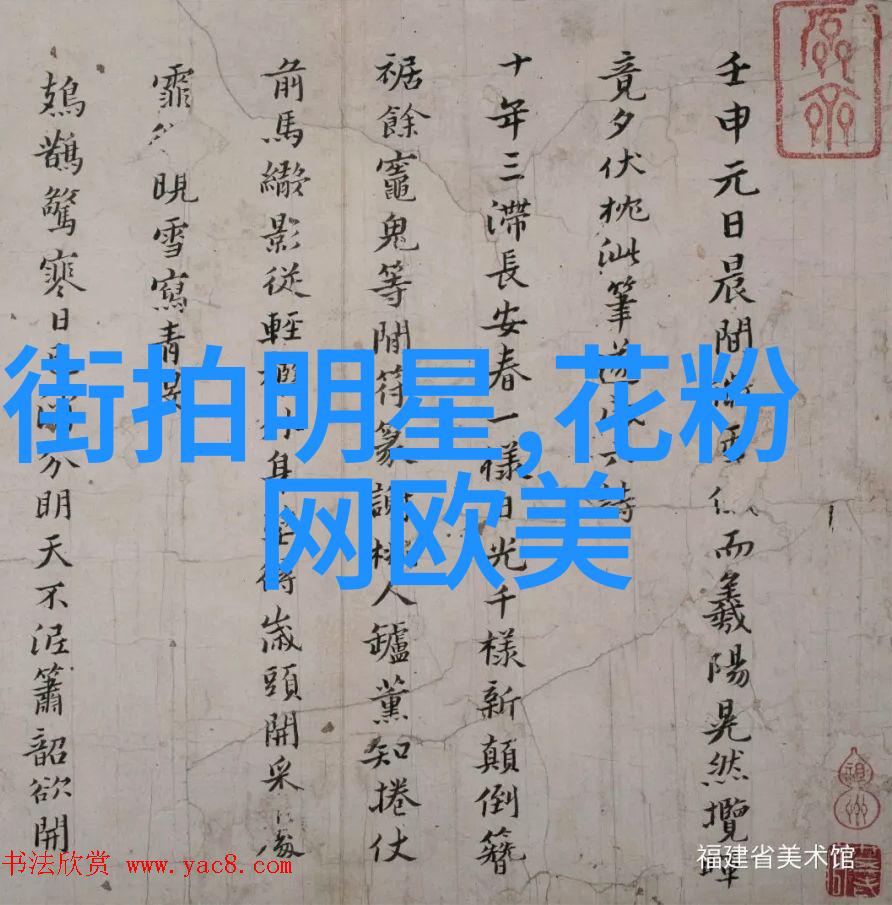 壬申元日晨間而羲陽晃然攬
竟夕伏枕泚筆詩
十年三滯長安春一樣日光千樣新顛倒簪
裾餘竈鬼等閒符篆人罏薰知捲仗
前馬影從輕身歲頭開采
霏晛雪寫青
鳷鵲驚寒日分明天不簫韶欲開
街拍明星,花粉
网欧美
书法欣赏 www.yac8.com
福建省美术馆